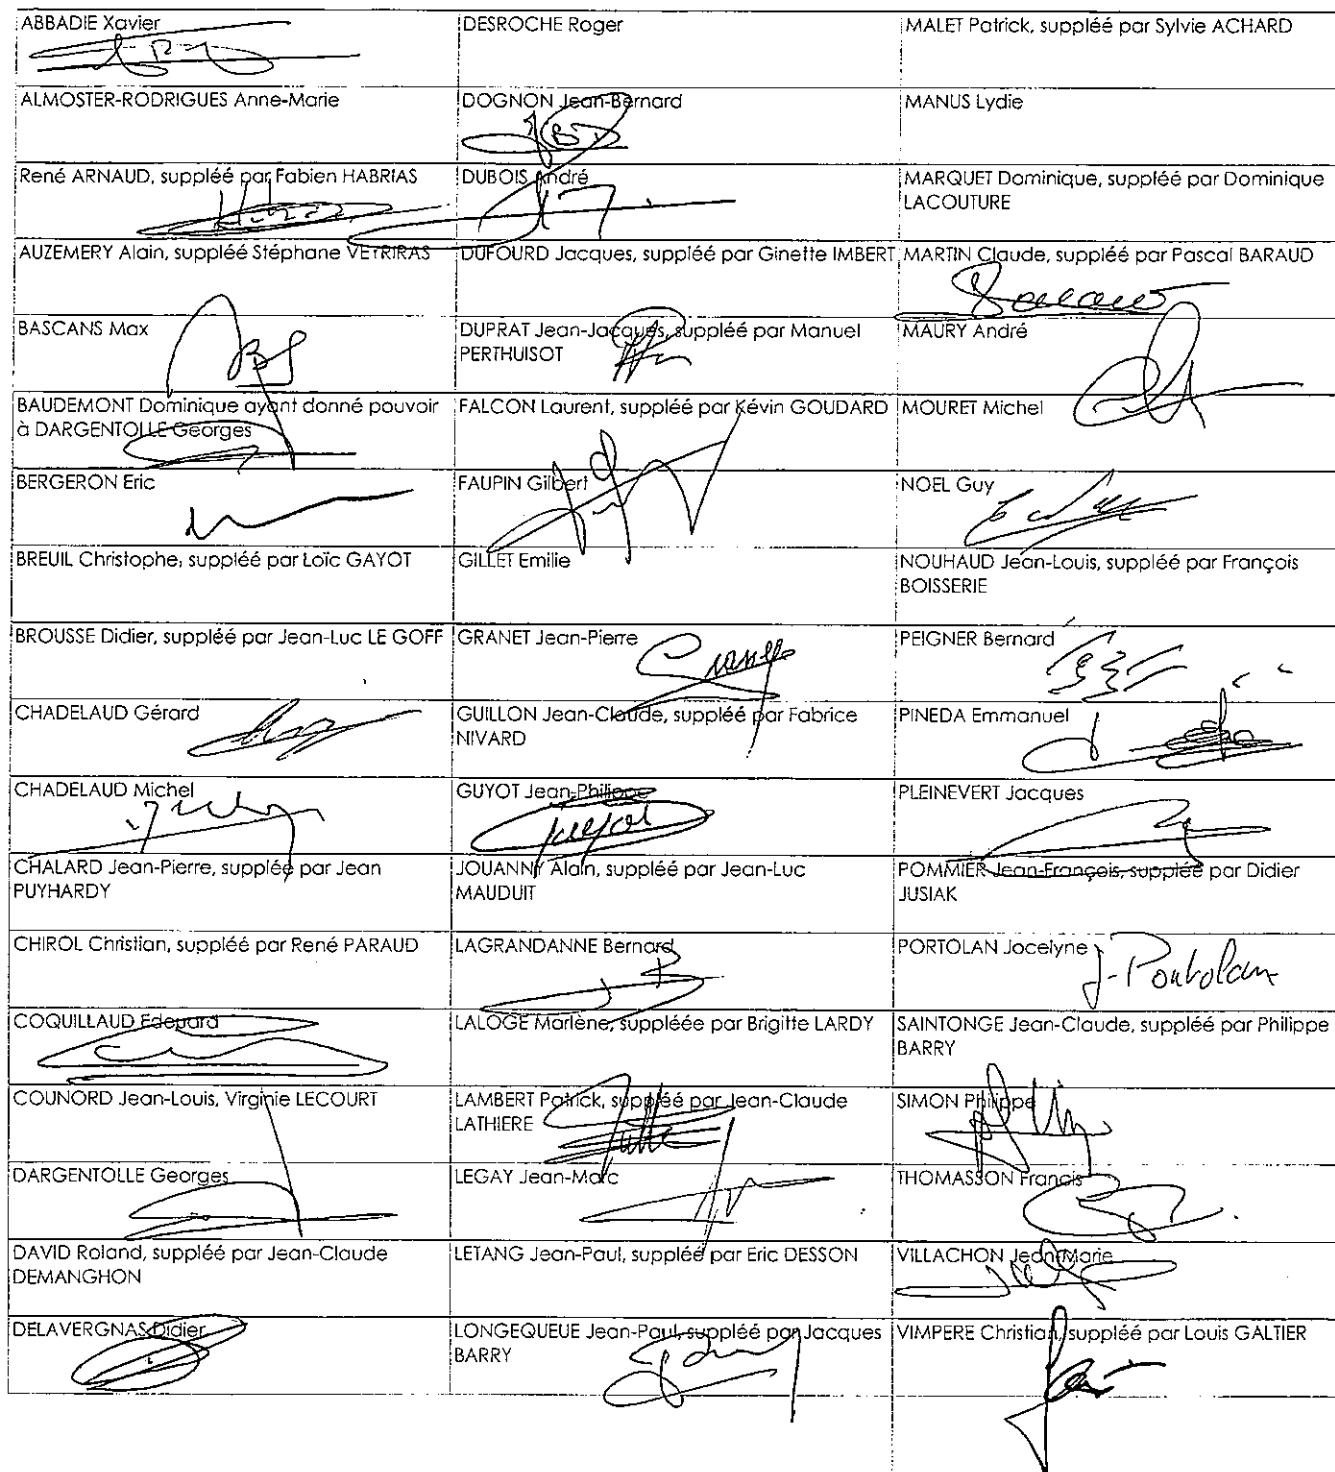 ABBADIE Xavier
DESROCHE Roger
MALET Patrick, suppléé par Sylvie ACHARD
ALMOSTER-RODRIGUES Anne-Marie
DOGNON Jean-Bernard
JBD
MANUS Lydie
René ARNAUD, suppléé par Fabien HABRIAS
DUBOIS André
MARQUET Dominique, suppléé par Dominique
LACOUTURE
AUZEMERY Alain, suppléé Stéphane VEYRIRAS
DUFOURD Jacques, suppléé par Ginette IMBERT
MARTIN Claude, suppléé par Pascal BARAUD
BASCANS Max
DUPRAT Jean-Jacques, suppléé par Manuel
PERTHUISOT
MAURY André
BAUDEMONT Dominique ayant donné pouvoir
à DARGENTOLLE Georges
FALCON Laurent, suppléé par Kévin GOUDARD
MOURET Michel
BERGERON Eric
FAUPIN Gilbert
NOEL Guy
BREUIL Christophe, suppléé par Loïc GAYOT
GILLET Emilie
NOUHAUD Jean-Louis, suppléé par François
BOISSERIE
BROUSSE Didier, suppléé par Jean-Luc LE GOFF
GRANET Jean-Pierre
PEIGNER Bernard
CHADELAUD Gérard
GUILLON Jean-Claude, suppléé par Fabrice
NIVARD
PINEDA Emmanuel
CHADELAUD Michel
GUYOT Jean-Philippe
PLEINEVERT Jacques
CHALARD Jean-Pierre, suppléé par Jean
PUYHARDY
JOUANNY Alain, suppléé par Jean-Luc
MAUDUIT
POMMIER Jean-François, suppléé par Didier
JUSIAK
CHIROL Christian, suppléé par René PARAUD
LAGRANDANNE Bernard
PORTOLAN Jocelyne
J. Portolan
COQUILLAUD Edouard
LALOGE Marlène, suppléée par Brigitte LARDY
SAINTONGE Jean-Claude, suppléé par Philippe
BARRY
COUNORD Jean-Louis, Virginie LECOURT
LAMBERT Patrick, suppléé par Jean-Claude
LATHIERE
SIMON Philippe
DARGENTOLLE Georges
LEGAY Jean-Marc
THOMASSON Francis
DAVID Roland, suppléé par Jean-Claude
DEMANGHON
LETANG Jean-Paul, suppléé par Eric DESSON
VILLACHON Jean-Marie
DELAVERGNAS Didier
LONGEQUEUE Jean-Paul, suppléé par Jacques
BARRY
VIMPERE Christian, suppléé par Louis GALTIER